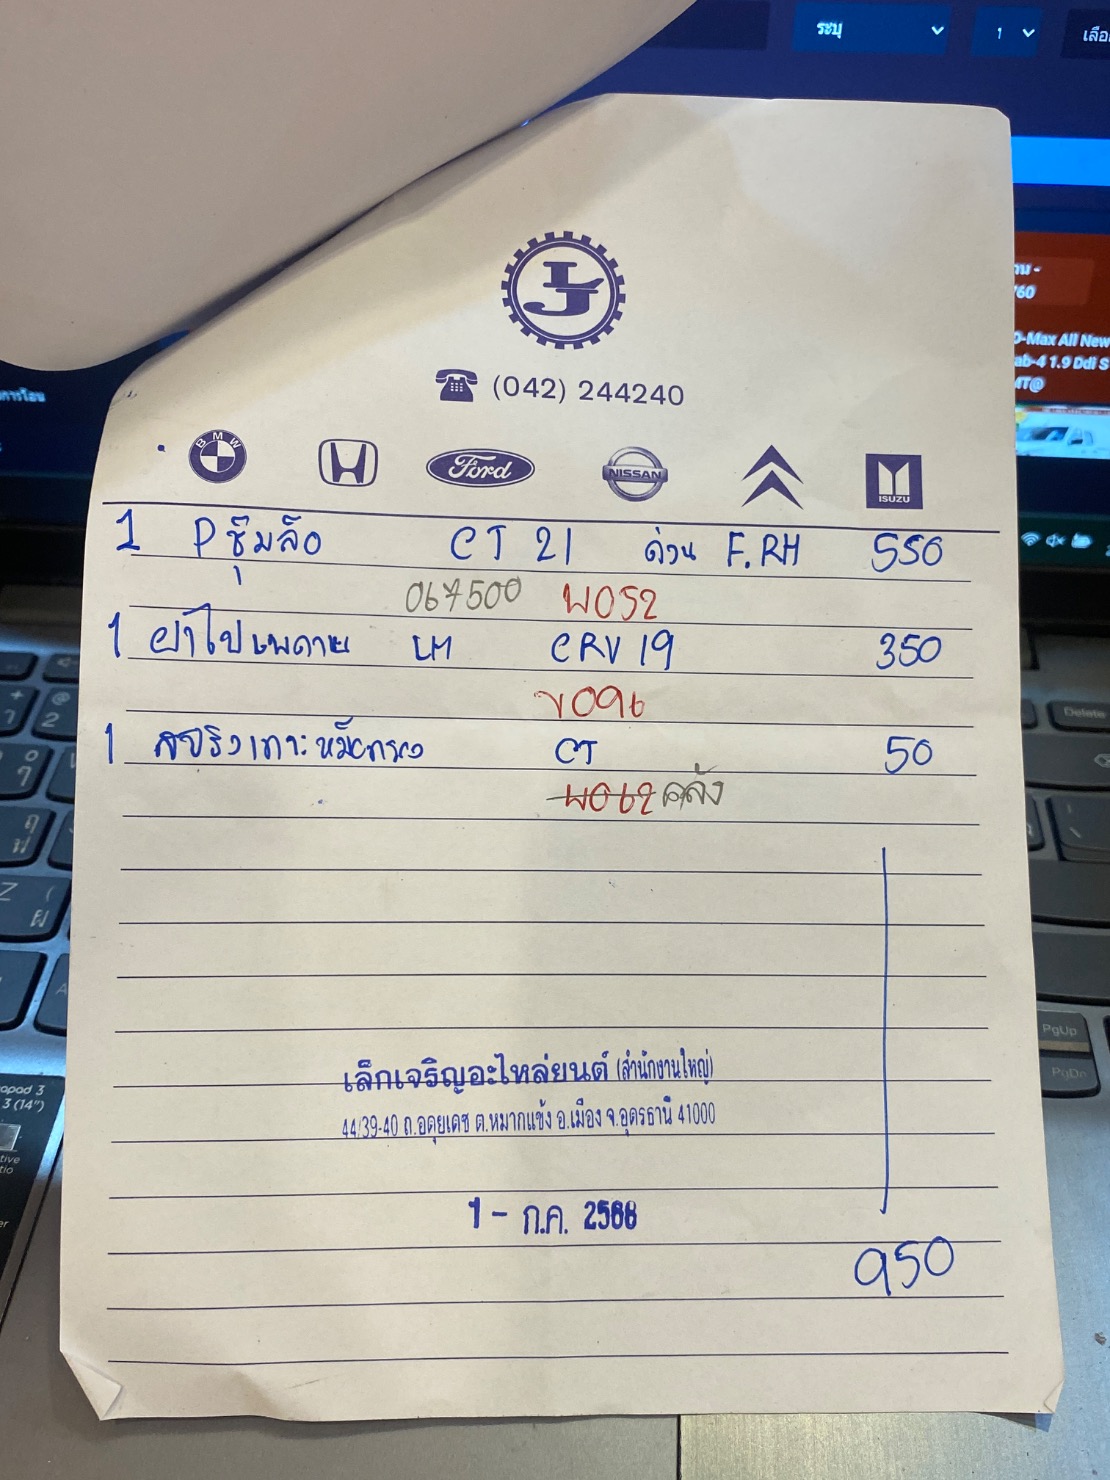 ระบุ
1
เลือ
LJ
(042) 244240
BMW
Ford
NISSAN
ISUZU
1 P ซุ้มล้อ CT 21 ด่วน F.RH 550
067500 W052
1 ฝาไฟเพดาน LM CRV 19 350
V096
1 สปริงเกาะหม้อกรอง CT 50
W062 คลัง
เล็กเจริญอะไหล่ยนต์ (สำนักงานใหญ่)
44/39-40 ถ.อดุยเดช ต.หมากแข้ง อ.เมือง จ.อุดรธานี 41000
1 - ก.ค. 2568
950
D-Max All New
ab-4 1.9 Ddi S
MT@
Delete
PgUp
PgDn